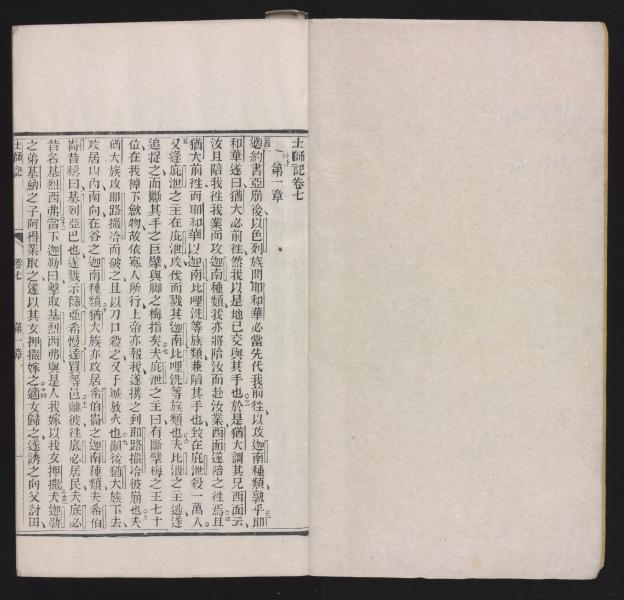 士師記卷七
第一章
適約書亞崩後以色列族問耶和華必當先代我前往以攻迦南種類孰乎耶
和華遂曰猶大必前往然我以是地已交與其手也於是猶大謂其兄西面云
汝且陪我往我業而攻迦南種類我亦將陪汝而赴汝業西面遂陪之往焉且
猶大前往而耶和華以迦南比哩洗等族類兼陪其手也致在庇泄殺一萬人
又逢庇泄之王在庇泄攻伐而戮其迦南比哩洗等族類也夫比泄之王逃遂
追捉之而斷其手之巨擘與腳之梅指矣夫庇泄之王曰有斷擘梅之王七十
位在我棹下斂物故依寡人所行上帝亦報我遂攜之到耶路撒冷彼崩也夫
猶大族攻耶路撒冷而破之且以刀口殺之又于城放火也嗣後猶大族下去
攻居山內南向在谷之迦南種類猶大族亦攻居希伯崙之迦南種類夫希伯
崙昔稱曰基列亞巴也遂戮示篩亞希慢達買等也離彼往底必居民夫底必
昔名基烈西弗當下迦勒曰擊取基烈西弗與是人我嫁以我女押撒夫迦勒
之弟基納之子阿得業取之遂以其女押撒嫁之適女歸之遂誘之向父討田
士師記 卷七 第一章 一